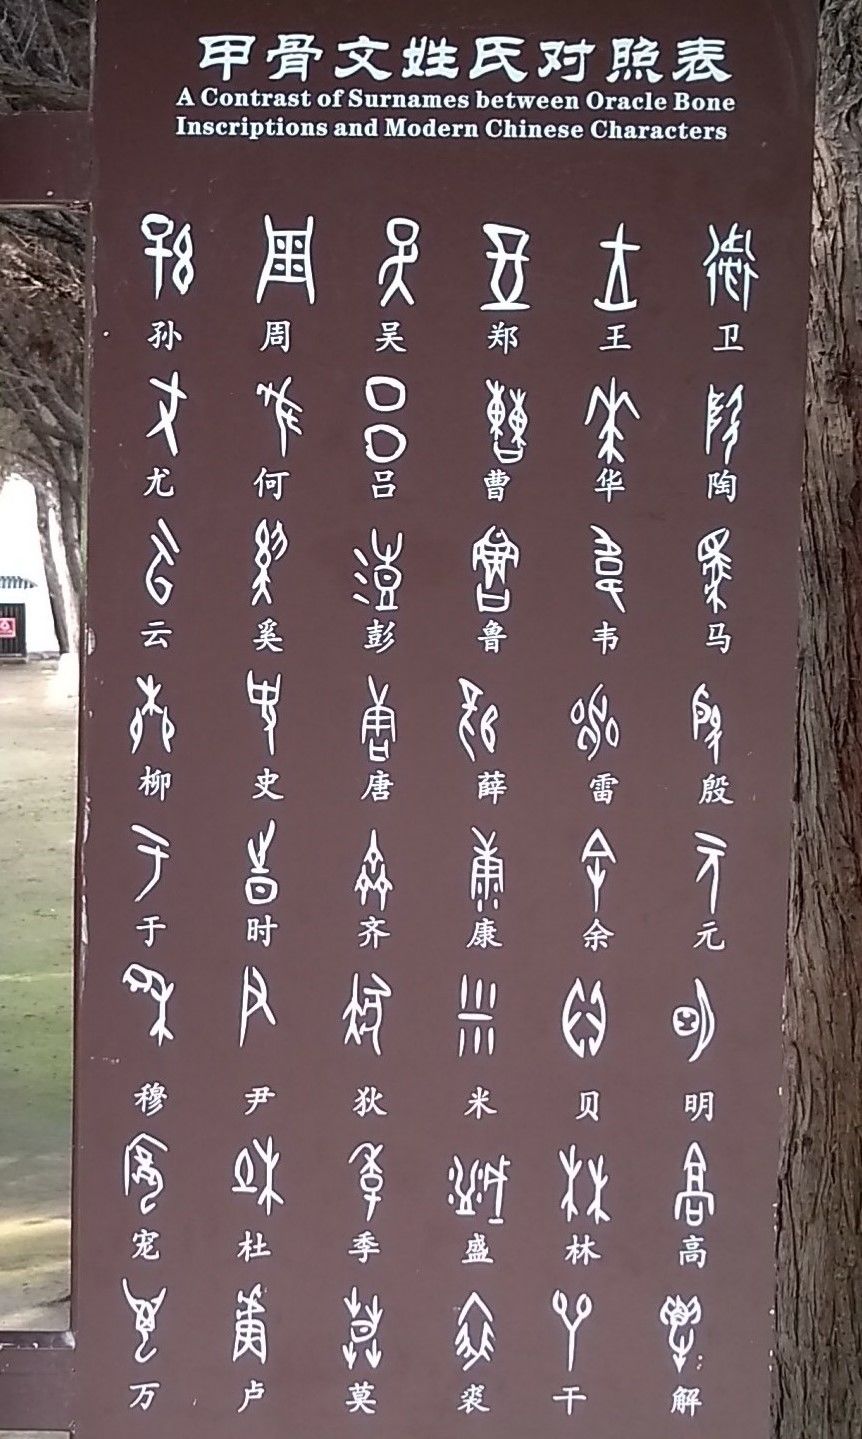 甲骨文姓氏对照表
A Contrast of Surnames between Oracle Bone
Inscriptions and Modern Chinese Characters
孙 周 吴 郑 王 卫
尤 何 吕 曹 华 陶
云 奚 彭 鲁 韦 马
柳 史 唐 薛 雷 殷
于 时 齐 康 余 元
穆 尹 狄 米 贝 明
宠 杜 季 盛 林 高
万 卢 莫 裘 干 解